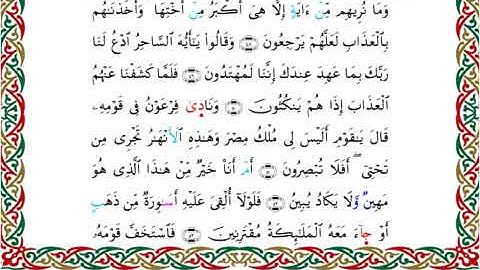 وَمَا نُرِيهِم مِّنْ ءَايَةٍ إِلَّا هِىَ أَكْبَرُ مِنْ أُخْتِهَا ۖ وَأَخَذْنَٰهُم
بِٱلْعَذَابِ لَعَلَّهُمْ يَرْجِعُونَ ۝٤٨ وَقَالُوا۟ يَٰٓأَيُّهَ ٱلسَّاحِرُ ٱدْعُ لَنَا
رَبَّكَ بِمَا عَهِدَ عِندَكَ إِنَّنَا لَمُهْتَدُونَ ۝٤٩ فَلَمَّا كَشَفْنَا عَنْهُمُ
ٱلْعَذَابَ إِذَا هُمْ يَنكُثُونَ ۝٥٠ وَنَادَىٰ فِرْعَوْنُ فِى قَوْمِهِۦ
قَالَ يَٰقَوْمِ أَلَيْسَ لِى مُلْكُ مِصْرَ وَهَٰذِهِ ٱلْأَنْهَٰرُ تَجْرِى مِن
تَحْتِىٓ ۖ أَفَلَا تُبْصِرُونَ ۝٥١ أَمْ أَنَا۠ خَيْرٌ مِّنْ هَٰذَا ٱلَّذِى هُوَ
مَهِينٌ وَلَا يَكَادُ يُبِينُ ۝٥٢ فَلَوْلَآ أُلْقِىَ عَلَيْهِ أَسَٰوِرَةٌ مِّن ذَهَبٍ
أَوْ جَآءَ مَعَهُ ٱلْمَلَٰٓئِكَةُ مُقْتَرِنِينَ ۝٥٣ فَٱسْتَخَفَّ قَوْمَهُۥ